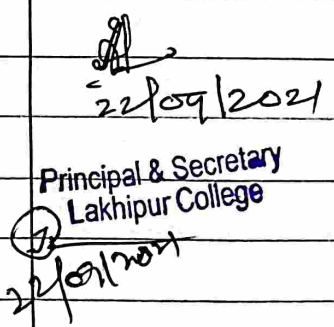 22/09/2021
Principal & Secretary
Lakhipur College
22/09/2021